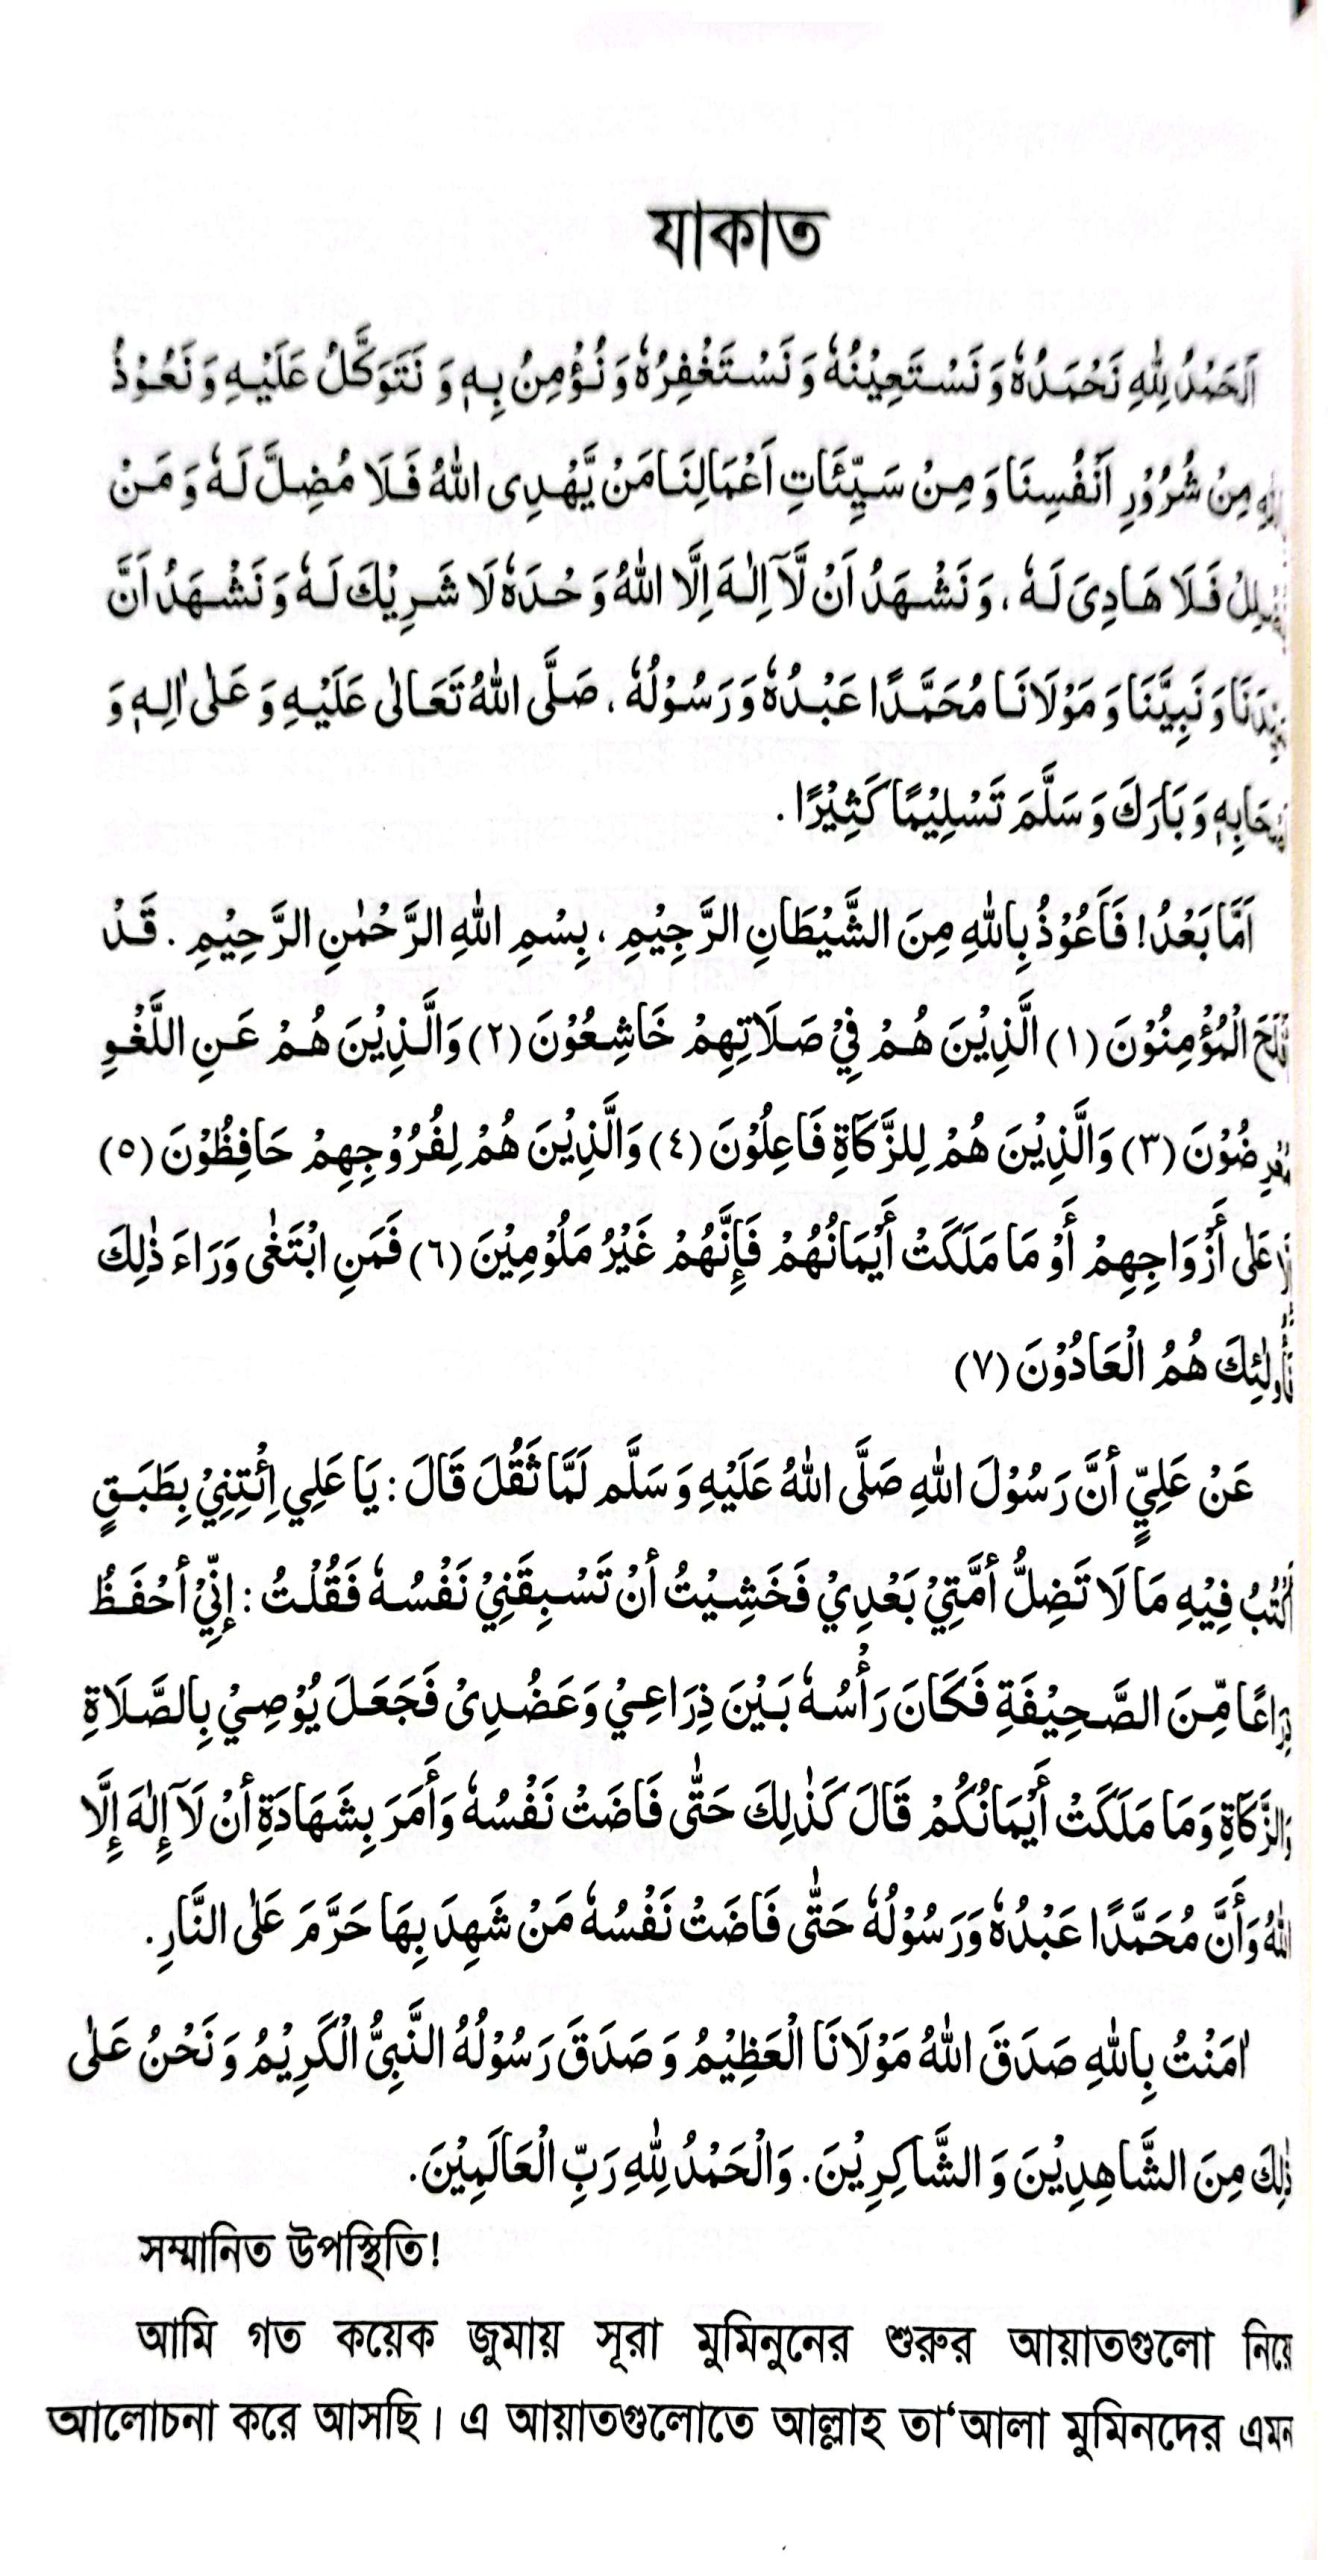 যাকাত
اَلْحَمْدُ لِلّٰهِ نَحْمَدُهٗ وَ نَسْتَعِيْنُهٗ وَ نَسْتَغْفِرُهٗ وَ نُؤْمِنُ بِهٖ وَ نَتَوَكَّلُ عَلَيْهِ وَ نَعُوْذُ
مِنْ شُرُوْرِ اَنْفُسِنَا وَ مِنْ سَيِّئَاتِ اَعْمَالِنَا مَنْ يَّهْدِى اللهُ فَلَا مُضِلَّ لَهٗ وَ مَنْ
فَلَا هَادِىَ لَهٗ ، وَ نَشْهَدُ اَنْ لَّآ اِلٰهَ اِلَّا اللهُ وَحْدَهٗ لَا شَرِيْكَ لَهٗ وَ نَشْهَدُ اَنَّ
وَ نَبِيَّنَا وَ مَوْلَانَا مُحَمَّدًا عَبْدُهٗ وَ رَسُوْلُهٗ ، صَلَّى اللهُ تَعَالٰى عَلَيْهِ وَ عَلٰى اٰلِهٖ وَ
وَ بَارَكَ وَ سَلَّمَ تَسْلِيْمًا كَثِيْرًا .
اَمَّا بَعْدُ! فَاَعُوْذُ بِاللهِ مِنَ الشَّيْطَانِ الرَّجِيْمِ ، بِسْمِ اللهِ الرَّحْمٰنِ الرَّحِيْمِ . قَدْ
الْمُؤْمِنُوْنَ (١) الَّذِيْنَ هُمْ فِيْ صَلَاتِهِمْ خَاشِعُوْنَ (٢) وَالَّذِيْنَ هُمْ عَنِ اللَّغْوِ
مُعْرِضُوْنَ (٣) وَالَّذِيْنَ هُمْ لِلزَّكَاةِ فَاعِلُوْنَ (٤) وَالَّذِيْنَ هُمْ لِفُرُوْجِهِمْ حَافِظُوْنَ (٥)
عَلٰى أَزْوَاجِهِمْ أَوْ مَا مَلَكَتْ أَيْمَانُهُمْ فَإِنَّهُمْ غَيْرُ مَلُوْمِيْنَ (٦) فَمَنِ ابْتَغٰى وَرَاءَ ذٰلِكَ
فَأُولٰئِكَ هُمُ الْعَادُوْنَ (٧)
عَنْ عَلِيٍّ أَنَّ رَسُوْلَ اللهِ صَلَّى اللهُ عَلَيْهِ وَ سَلَّم لَمَّا ثَقُلَ قَالَ : يَا عَلِي اِئْتِنِيْ بِطَبَقٍ
أَكْتُبُ فِيْهِ مَا لَا تَضِلُّ أمَّتِيْ بَعْدِيْ فَخَشِيْتُ أنْ تَسْبِقَنِيْ نَفْسُهٗ فَقُلْتُ : إنِّيْ أحْفَظُ
ذِرَاعًا مِّنَ الصَّحِيْفَةِ فَكَانَ رَأْسُهٗ بَيْنَ ذِرَاعِيْ وَعَضُدِىْ فَجَعَلَ يُوْصِيْ بِالصَّلَاةِ
وَالزَّكَاةِ وَمَا مَلَكَتْ أَيْمَانُكُمْ قَالَ كَذٰلِكَ حَتّٰى فَاضَتْ نَفْسُهٗ وَأَمَرَ بِشَهَادَةِ أنْ لَآ إِلٰهَ إِلَّا
اللهُ وَأَنَّ مُحَمَّدًا عَبْدُهٗ وَرَسُوْلُهٗ حَتّٰى فَاضَتْ نَفْسُهٗ مَنْ شَهِدَ بِهَا حَرَّمَ عَلٰى النَّارِ.
اٰمَنْتُ بِاللهِ صَدَقَ اللهُ مَوْلَانَا الْعَظِيْمُ وَ صَدَقَ رَسُوْلُهُ النَّبِيُّ الْكَرِيْمُ وَ نَحْنُ عَلٰى
ذٰلِكَ مِنَ الشَّاهِدِيْنَ وَ الشَّاكِرِيْنَ. وَالْحَمْدُ لِلّٰهِ رَبِّ الْعَالَمِيْنَ.
সম্মানিত উপস্থিতি!
আমি গত কয়েক জুমায় সূরা মুমিনুনের শুরুর আয়াতগুলো নিয়ে
আলোচনা করে আসছি। এ আয়াতগুলোতে আল্লাহ তা‘আলা মুমিনদের এমন